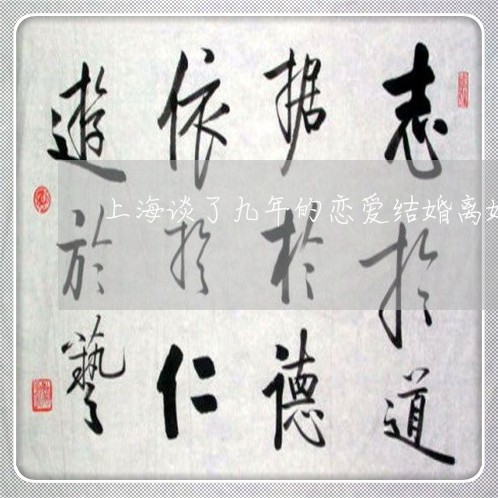 志於道
据於德
依於仁
遊於藝
上海谈了九年的恋爱结婚离